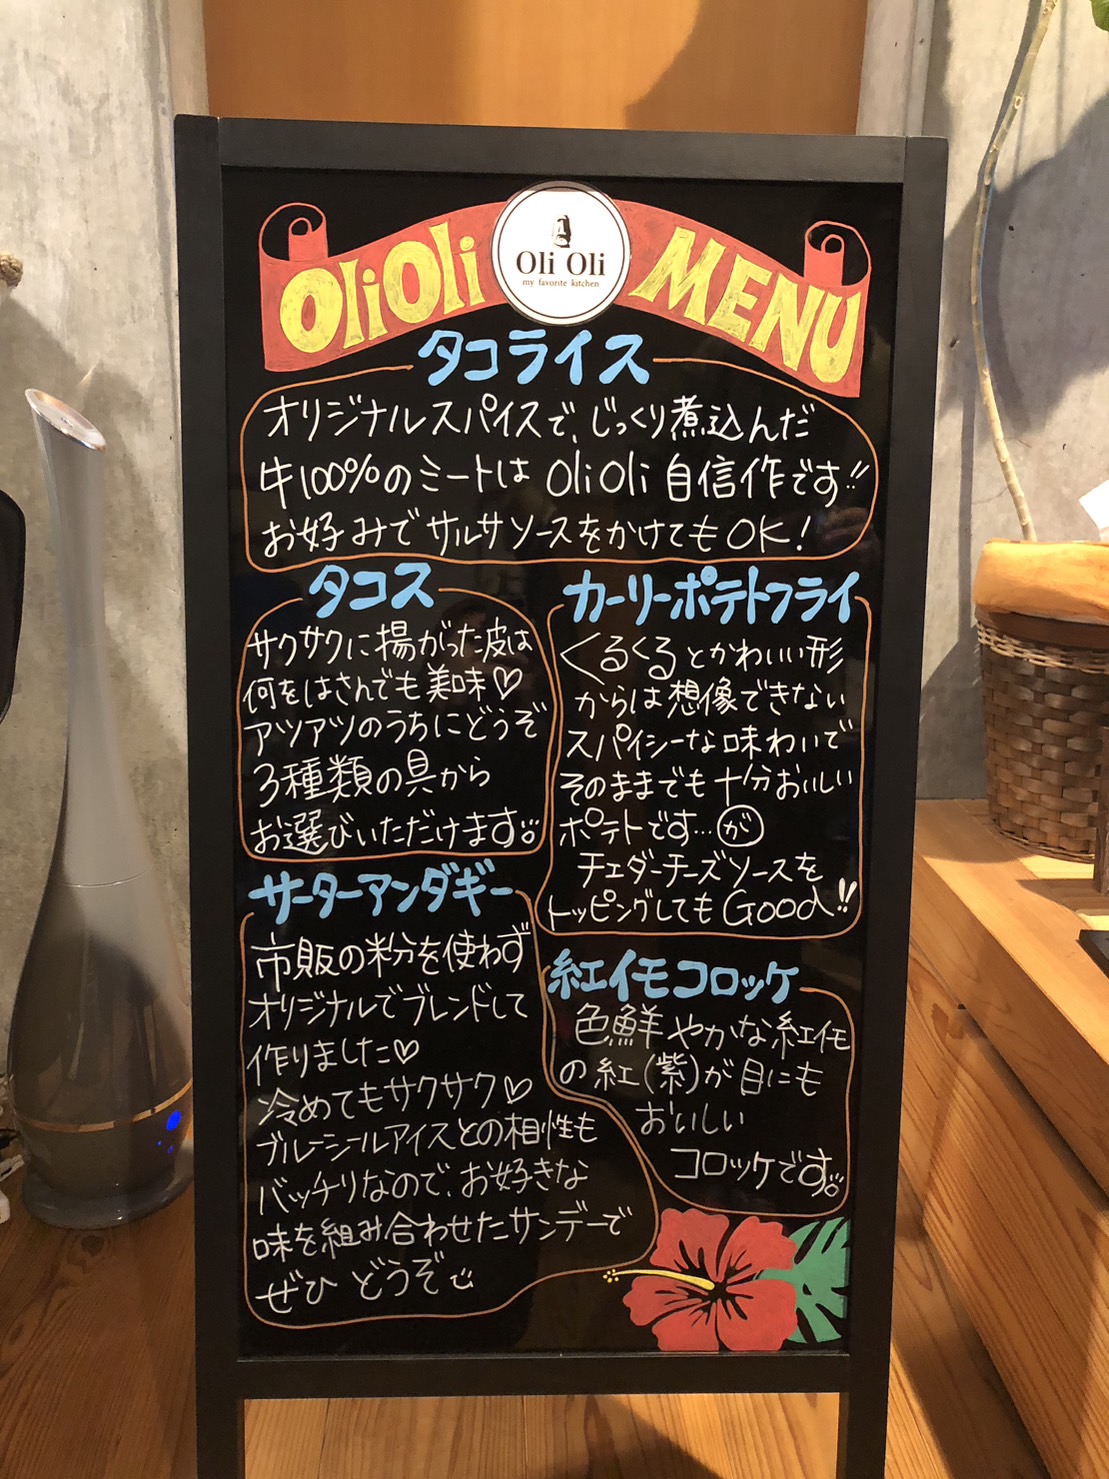 OliOli
Oli Oli
my favorite kitchen
MENU
タコライス
オリジナルスパイスで、じっくり煮込んだ
牛100%のミートは OliOli 自信作です!!
お好みでサルサソースをかけてもOK!
タコス
サクサクに揚がった皮は
何をはさんでも美味♡
アツアツのうちにどうぞ
3種類の具から
お選びいただけます。
カーリーポテトフライ
くるくるとかわいい形
からは想像できない
スパイシーな味わいで
そのままでも十分おいしい
ポテトです…が
チェダーチーズソースを
トッピングしてもGood!!
サーターアンダギー
市販の粉を使わず
オリジナルでブレンドして
作りました♡
冷めてもサクサク♡
ブルーシールアイスとの相性も
バッチリなので、お好きな
味を組み合わせたサンデーで
ぜひ どうぞ
紅イモコロッケ
色鮮やかな紅イモ
の紅(紫)が目にも
おいしい
コロッケです。